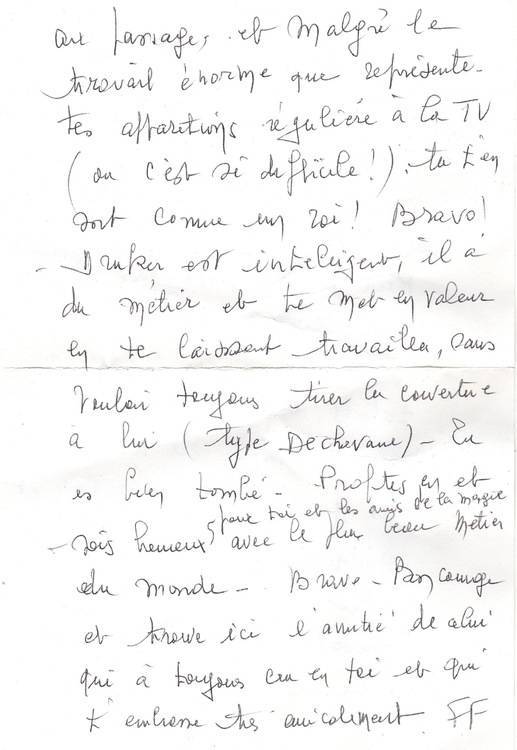 au passage, et malgré le
travail énorme que représente
tes apparitions régulière à la TV
(ou c'est si difficile!). tu t'en
sort comme un roi! Bravo!
- Druker est intelligent, il a
du métier et te met en valeur
en te laissant travailler, sans
vouloir toujours tirer la couverture
à lui (type Dechavane) - Tu
es bien tombé - Profites en et
pour toi et les amis de la magie
- sois heureux avec le plus beau métier
du monde - Bravo - Bon courage
et trouve ici l'amitié de celui
qui à toujours cru en toi et qui
t'embrasse très amicalement FF